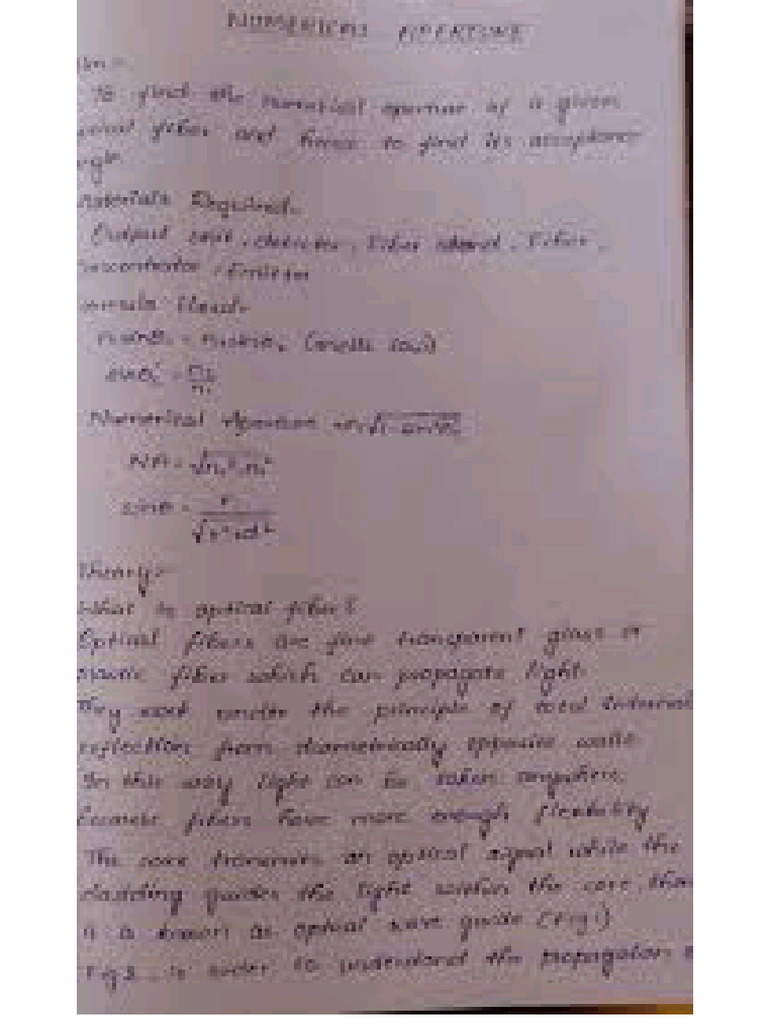 NUMERICAL APERTURE
Aim :-
To find the numerical aperture of a given
optical fiber and hence to find its acceptance
angle
Materials Required:-
Output unit, detector, Fiber stand, Fiber,
Emitter
Formula Used:-
(snells law)
sinθc = n2/n1
Numerical Aperture
NA = √n1²-n2²
sinθ = r/√r²+d²
Theory:-
What is optical fiber?
Optical fibers are fine transparent glass or
plastic fiber which can propagate light.
They work under the principle of total internal
reflection from diametrically opposite walls
In this way light can be taken anywhere.
fibers have more enough flexibility
The core transmits an optical signal while the
cladding guides the light within the core,
it is known as optical wave guide (Fig 1)
Fig 2. is order to understand the propagation